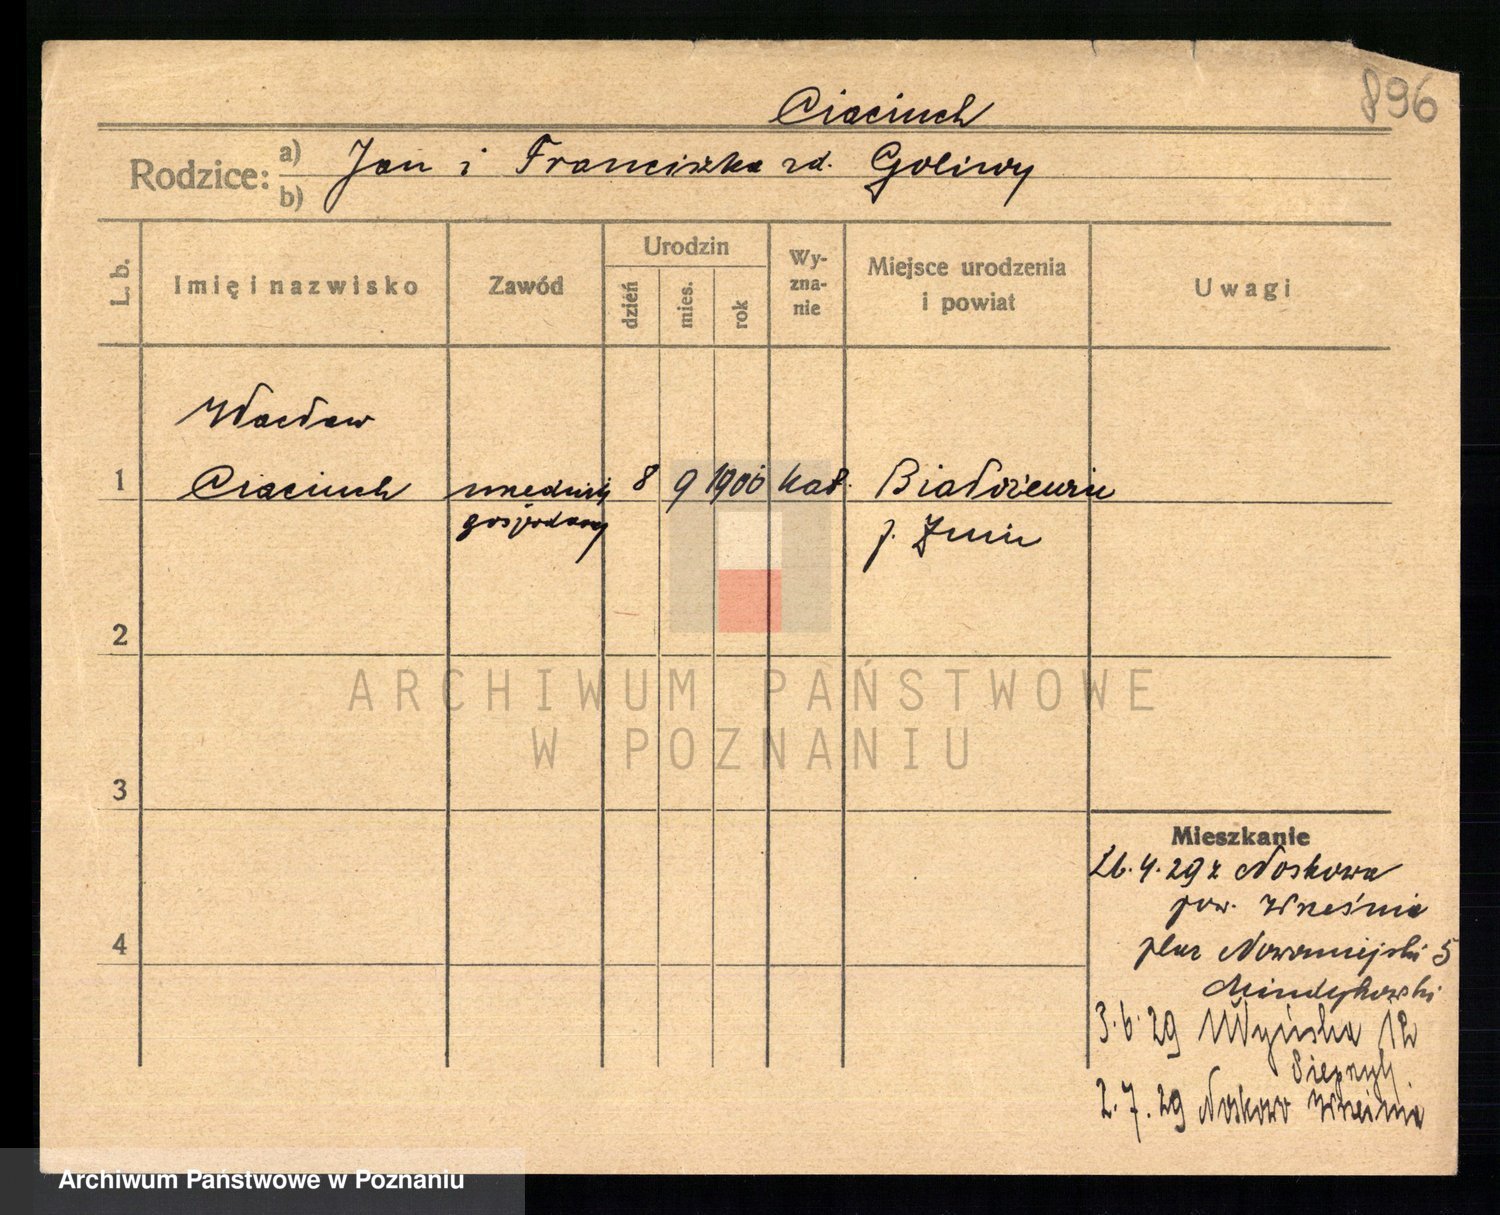 896
Ciaciuch
Rodzice: a) b) Jan i Franciszka zd. Goliwy
L. b.
Imię i nazwisko
Zawód
Urodzin
dzień
mies.
rok
Wy-
zna-
nie
Miejsce urodzenia
i powiat
Uwagi
Wacław
1 Ciaciuch urzędnik 8 9 1906 kat. Białożewin
gospodarczy p. Żnin
2
ARCHIWUM PAŃSTWOWE
W POZNANIU
3
Mieszkanie
26.4.29 z Noskowa
pow. Września
4
plac Nowomiejski 5
Mindykowski
3.6.29 12
2.7.29 Noskowo Września
Archiwum Państwowe w Poznaniu